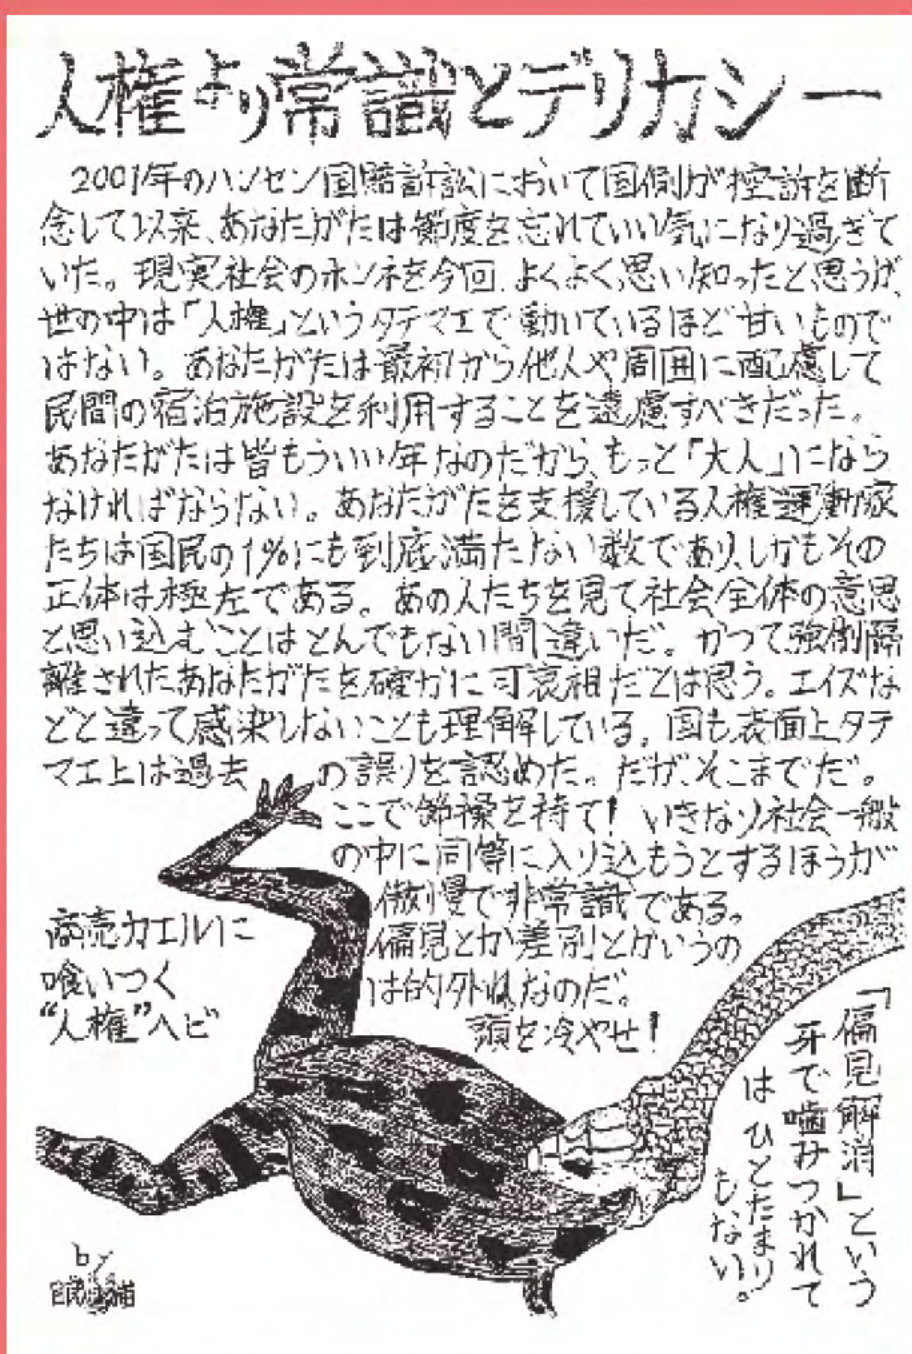 人権より常識とデリカシー
2001年のハンセン国賠訴訟において国側が控訴を断
念して以来、あなたがたは節度を忘れていい気になり過ぎて
いた。現実社会のホンネを今回、よくよく思い知ったと思うが、
世の中は「人権」というタテマエで動いているほど甘いもので
はない。あなたがたは最初から他人や周囲に配慮して
民間の宿泊施設を利用することを遠慮すべきだった。
あなたがたは皆もういい年なのだから、もっと「大人」になら
なければならない。あなたがたを支援している人権運動家
たちは国民の1%にも到底満たない数であり、しかもその
正体は極左である。あの人たちを見て社会全体の意思
と思い込むことはとんでもない間違いだ。かつて強制隔
離されたあなたがたを確かに可哀相だとは思う。エイズな
どと違って感染しないことも理解している。国も表面上タテ
マエ上は過去の誤りを認めた。だが、そこまでだ。
ここで節操を持て!いきなり社会一般
の中に同等に入り込もうとするほうが
傲慢で非常識である。
偏見とか差別とかいうの
は的外れなのだ。
頭を冷やせ!
商売カエルに
喰いつく
“人権”ヘビ
「偏見解消」という
牙で噛みつかれて
はひとたまり
もない。
by